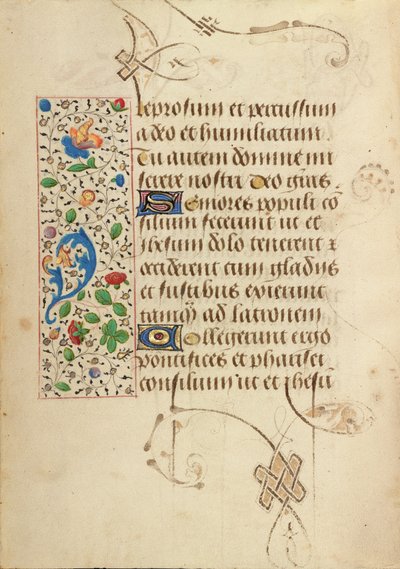 leprosum et percussum
a deo et humiliatum
Tu autem domine mi
serere nostri Deo gr̄as.
Semores populi cō
silium fecerunt ut et
ihesum dolo tenerent ⁊
occiderent cum gladijs
et fustibus exierunt
tamq̄ ad latronem
Collegerunt ergo
pontifices et pharisei
consilium ut et ihesū